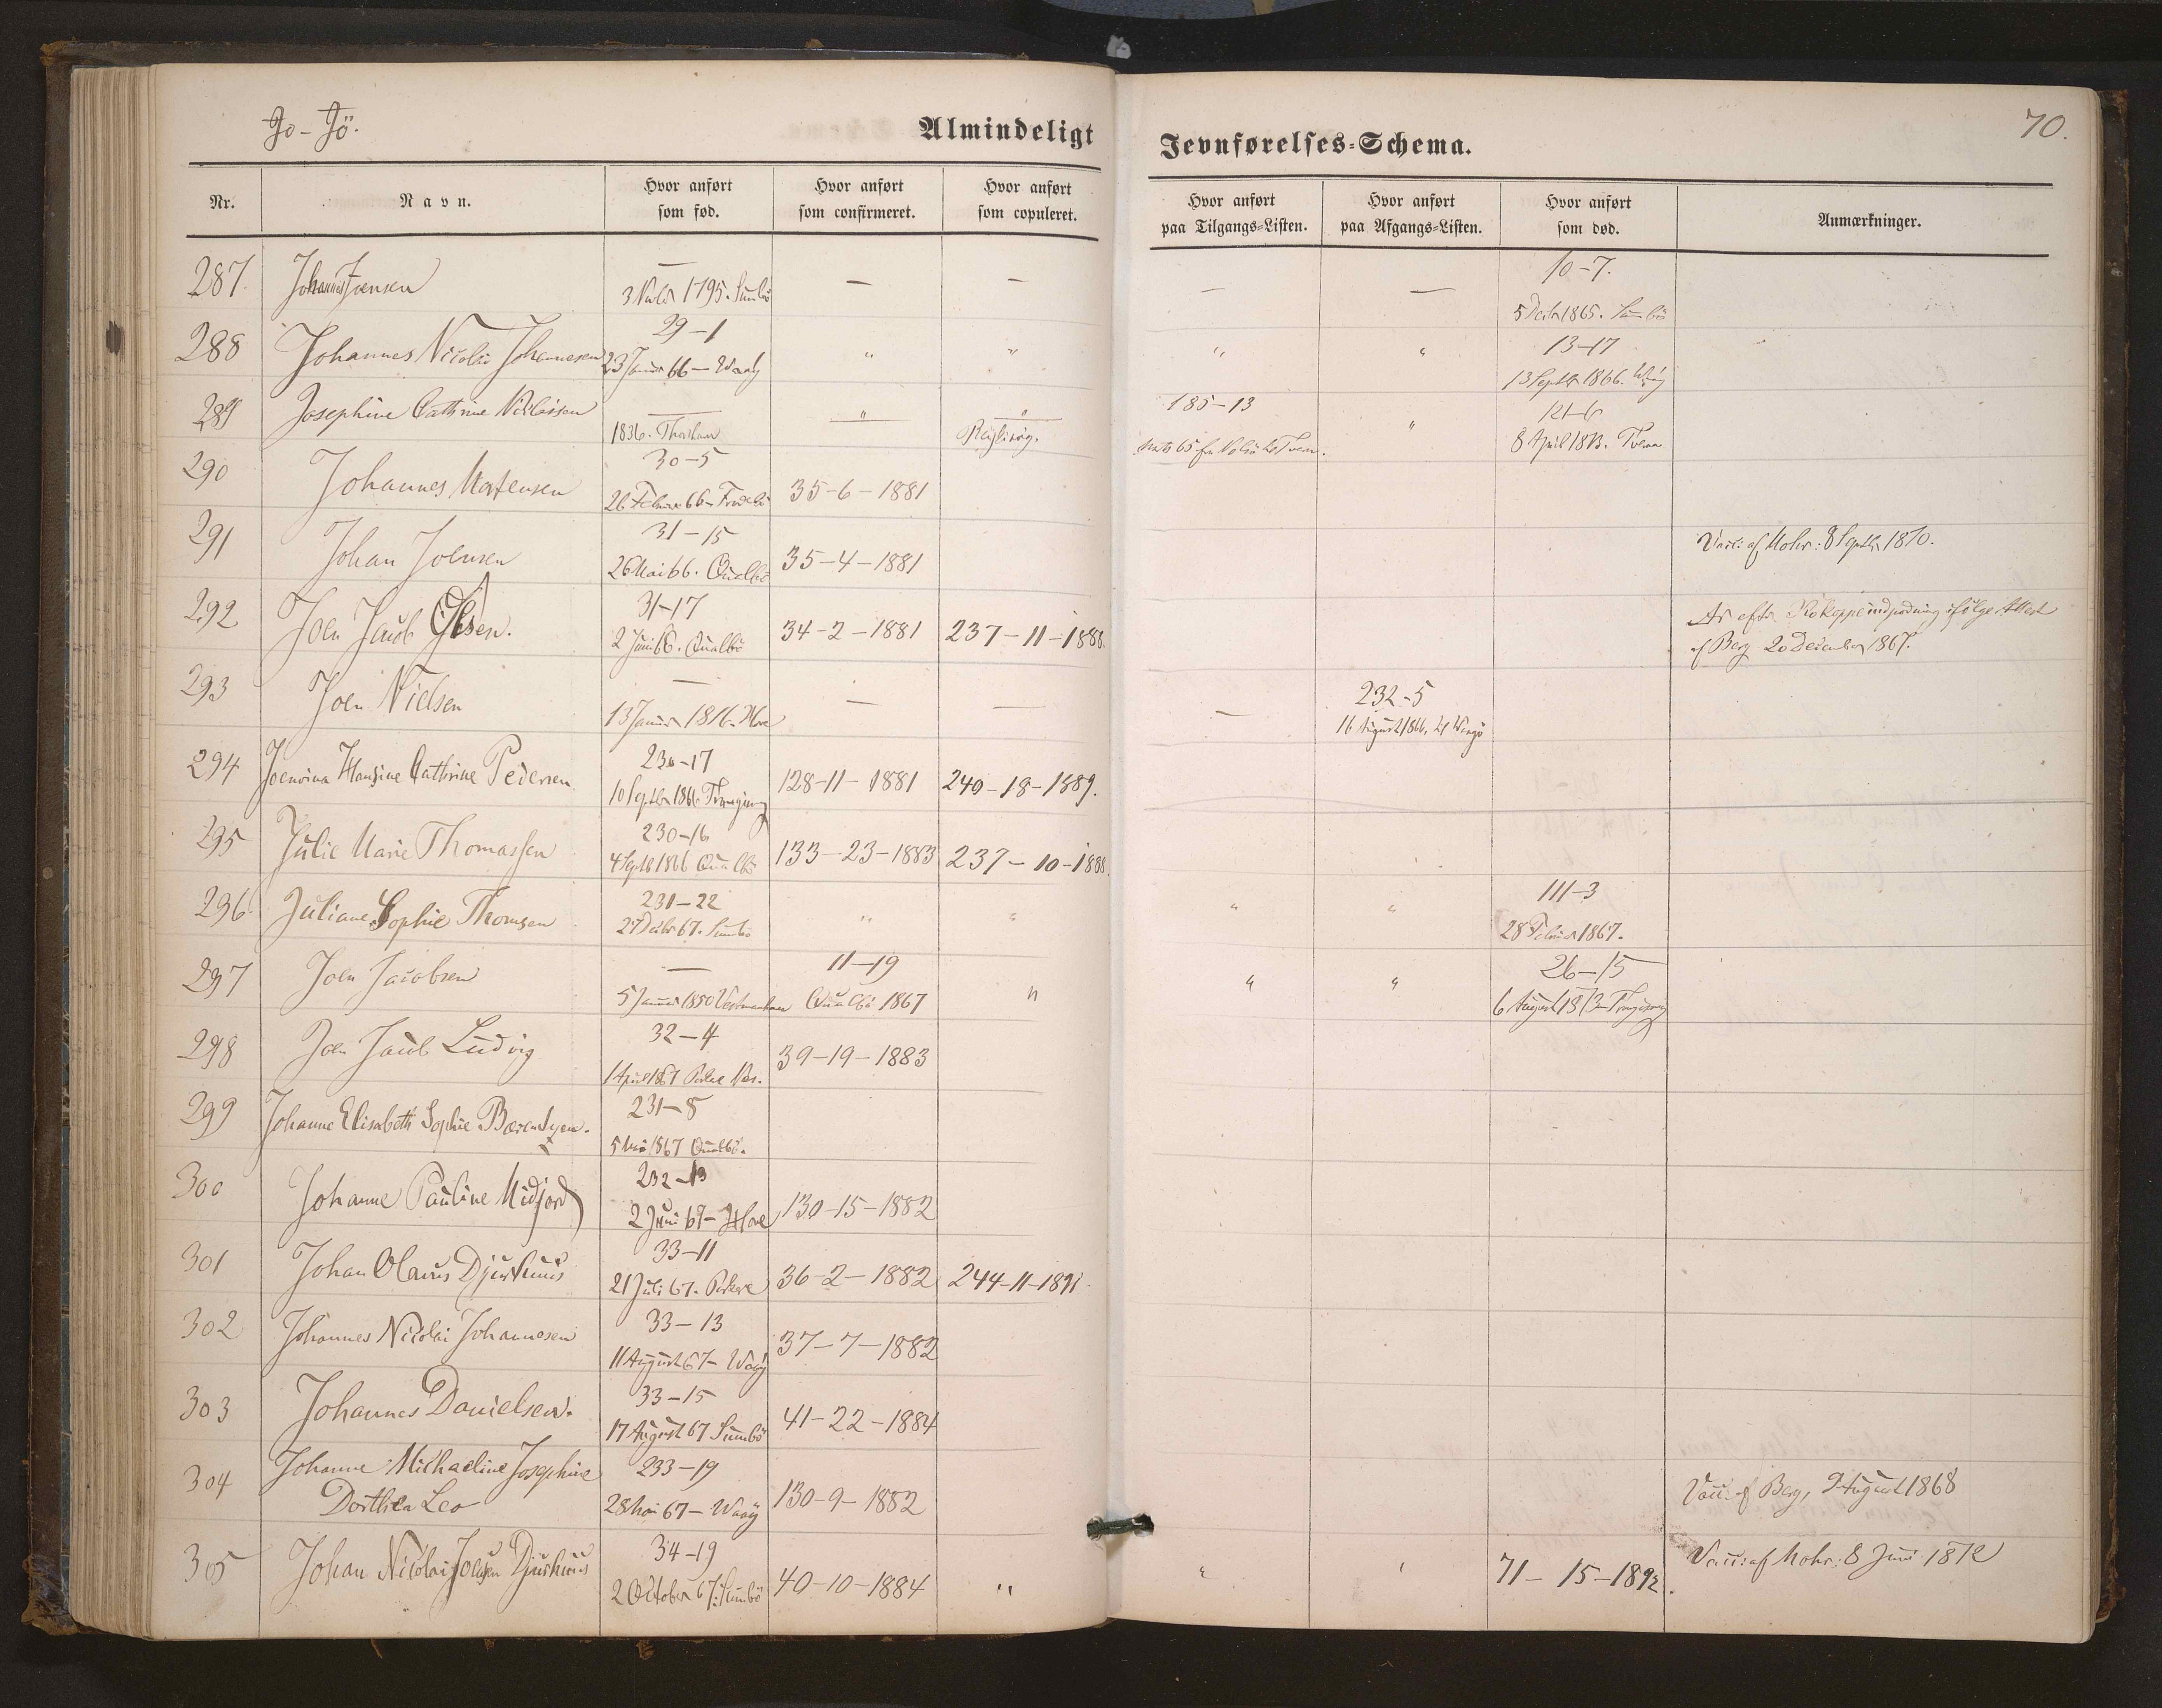 Jo-Jö.
Almindeligt Jevnførelses-Schema.
70.
Nr.
Navn.
Hvor anført
som fød.
Hvor anført
som confirmeret.
Hvor anført
som copuleret.
Hvor anført
paa Tilgangs-Listen.
Hvor anført
paa Afgangs-Listen.
Hvor anført
som død.
Anmærkninger.
287. Johannes Joensen — — — — — 10-7.
1795. Sumbö 5 Decbr 1865. Sumbö
288 Johannes Nicolai Johannesen 29-1 " " " " 13-17
23 Januar 66 - Waag 13 Septbr 1866. Waag
289 Josephine Cathrine — " " 185-13 "
1836. 8 April
290 Johannes Mortensen 30-5
26 Februar 66 35-6-1881
291 Johan Joensen 31-15 Vacc: af Mohr: 8 Septbr 1870.
26 Mai 66. Qualbö 35-4-1881
292 Joen Jacob Olsen. 31-17 Ar efter Kokoppeindpodning ifølge Attest
2 Juni 66. Qualbö 34-2-1881 237-11-1888. af Berg 20 December 1867.
293 Joen Nielsen — — — — 232-5
13 Januar 1816. Hove 16 August 1866.
294 Joenvina Hansine Cathrine Pedersen 230-17
10 Septbr 1866 128-11-1881 240-18-1889.
295 Julie Marie Thomassen 230-16
4 Septbr 1866 Qualbö 133-23-1883 237-10-1888.
296. Juliane Sophie Thomsen 231-22 " " " " 111-3
Decbr 67. Sumbö 28 Februar 1867.
297 Joen Jacobsen — 11-19 " " " 26-15
5 Januar 1850 Vestmanhavn Qualbö 1867 6 August
298 Joen Jacob Ludvig 32-4
1 April 1867 39-19-1883
299 Johanne Elisabeth Sophie Bærentsen. 231-8
5 Mai 1867 Qualbö.
300 Johanne Pauline Midjord 232-13
2 Juni 67 - Hove 130-15-1882
301 Johan Olaus Djurhuus 33-11
21 Juli 67. Porkere 36-2-1882 244-11-1891.
302 Johannes Nicolai Johannesen 33-13
11 August 67 - Waag 37-7-1882
303 Johannes Danielsen. 33-15
17 August 67 Sumbö 41-22-1884
304 Johanne Michaeline Josephine 233-19
Dorthea Leo 28 Mai 67 - Waag 130-9-1882 Vacc: af Berg, 2 August 1868
305 Johan Nicolai Joensen Djurhuus 34-19 Vacc: af Mohr: 8 Juni 1872
2 October 67. Sumbö 40-10-1884 " " " 71-15-1892.